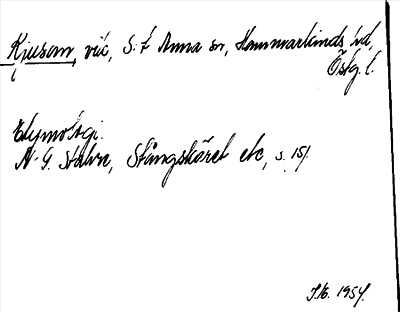 Kjusan, vik, S:t Anna sn, Hammarkinds hd,
Östg.l.
Etymologi.
N.G. Stahre, Stångskäret etc, s. 151.
1954.